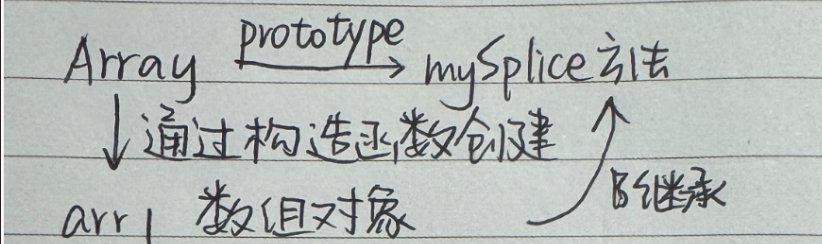 Array prototype mySplice方法
通过构造函数创建
arr1 数组对象 继承